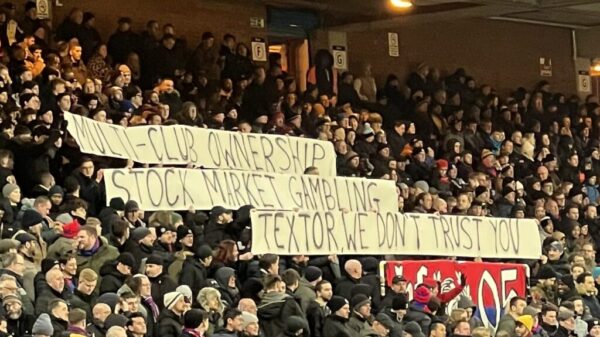 F
G
MULTI-CLUB OWNERSHIP
STOCK MARKET GAMBLING
TEXTOR, WE DON'T TRUST YOU
05